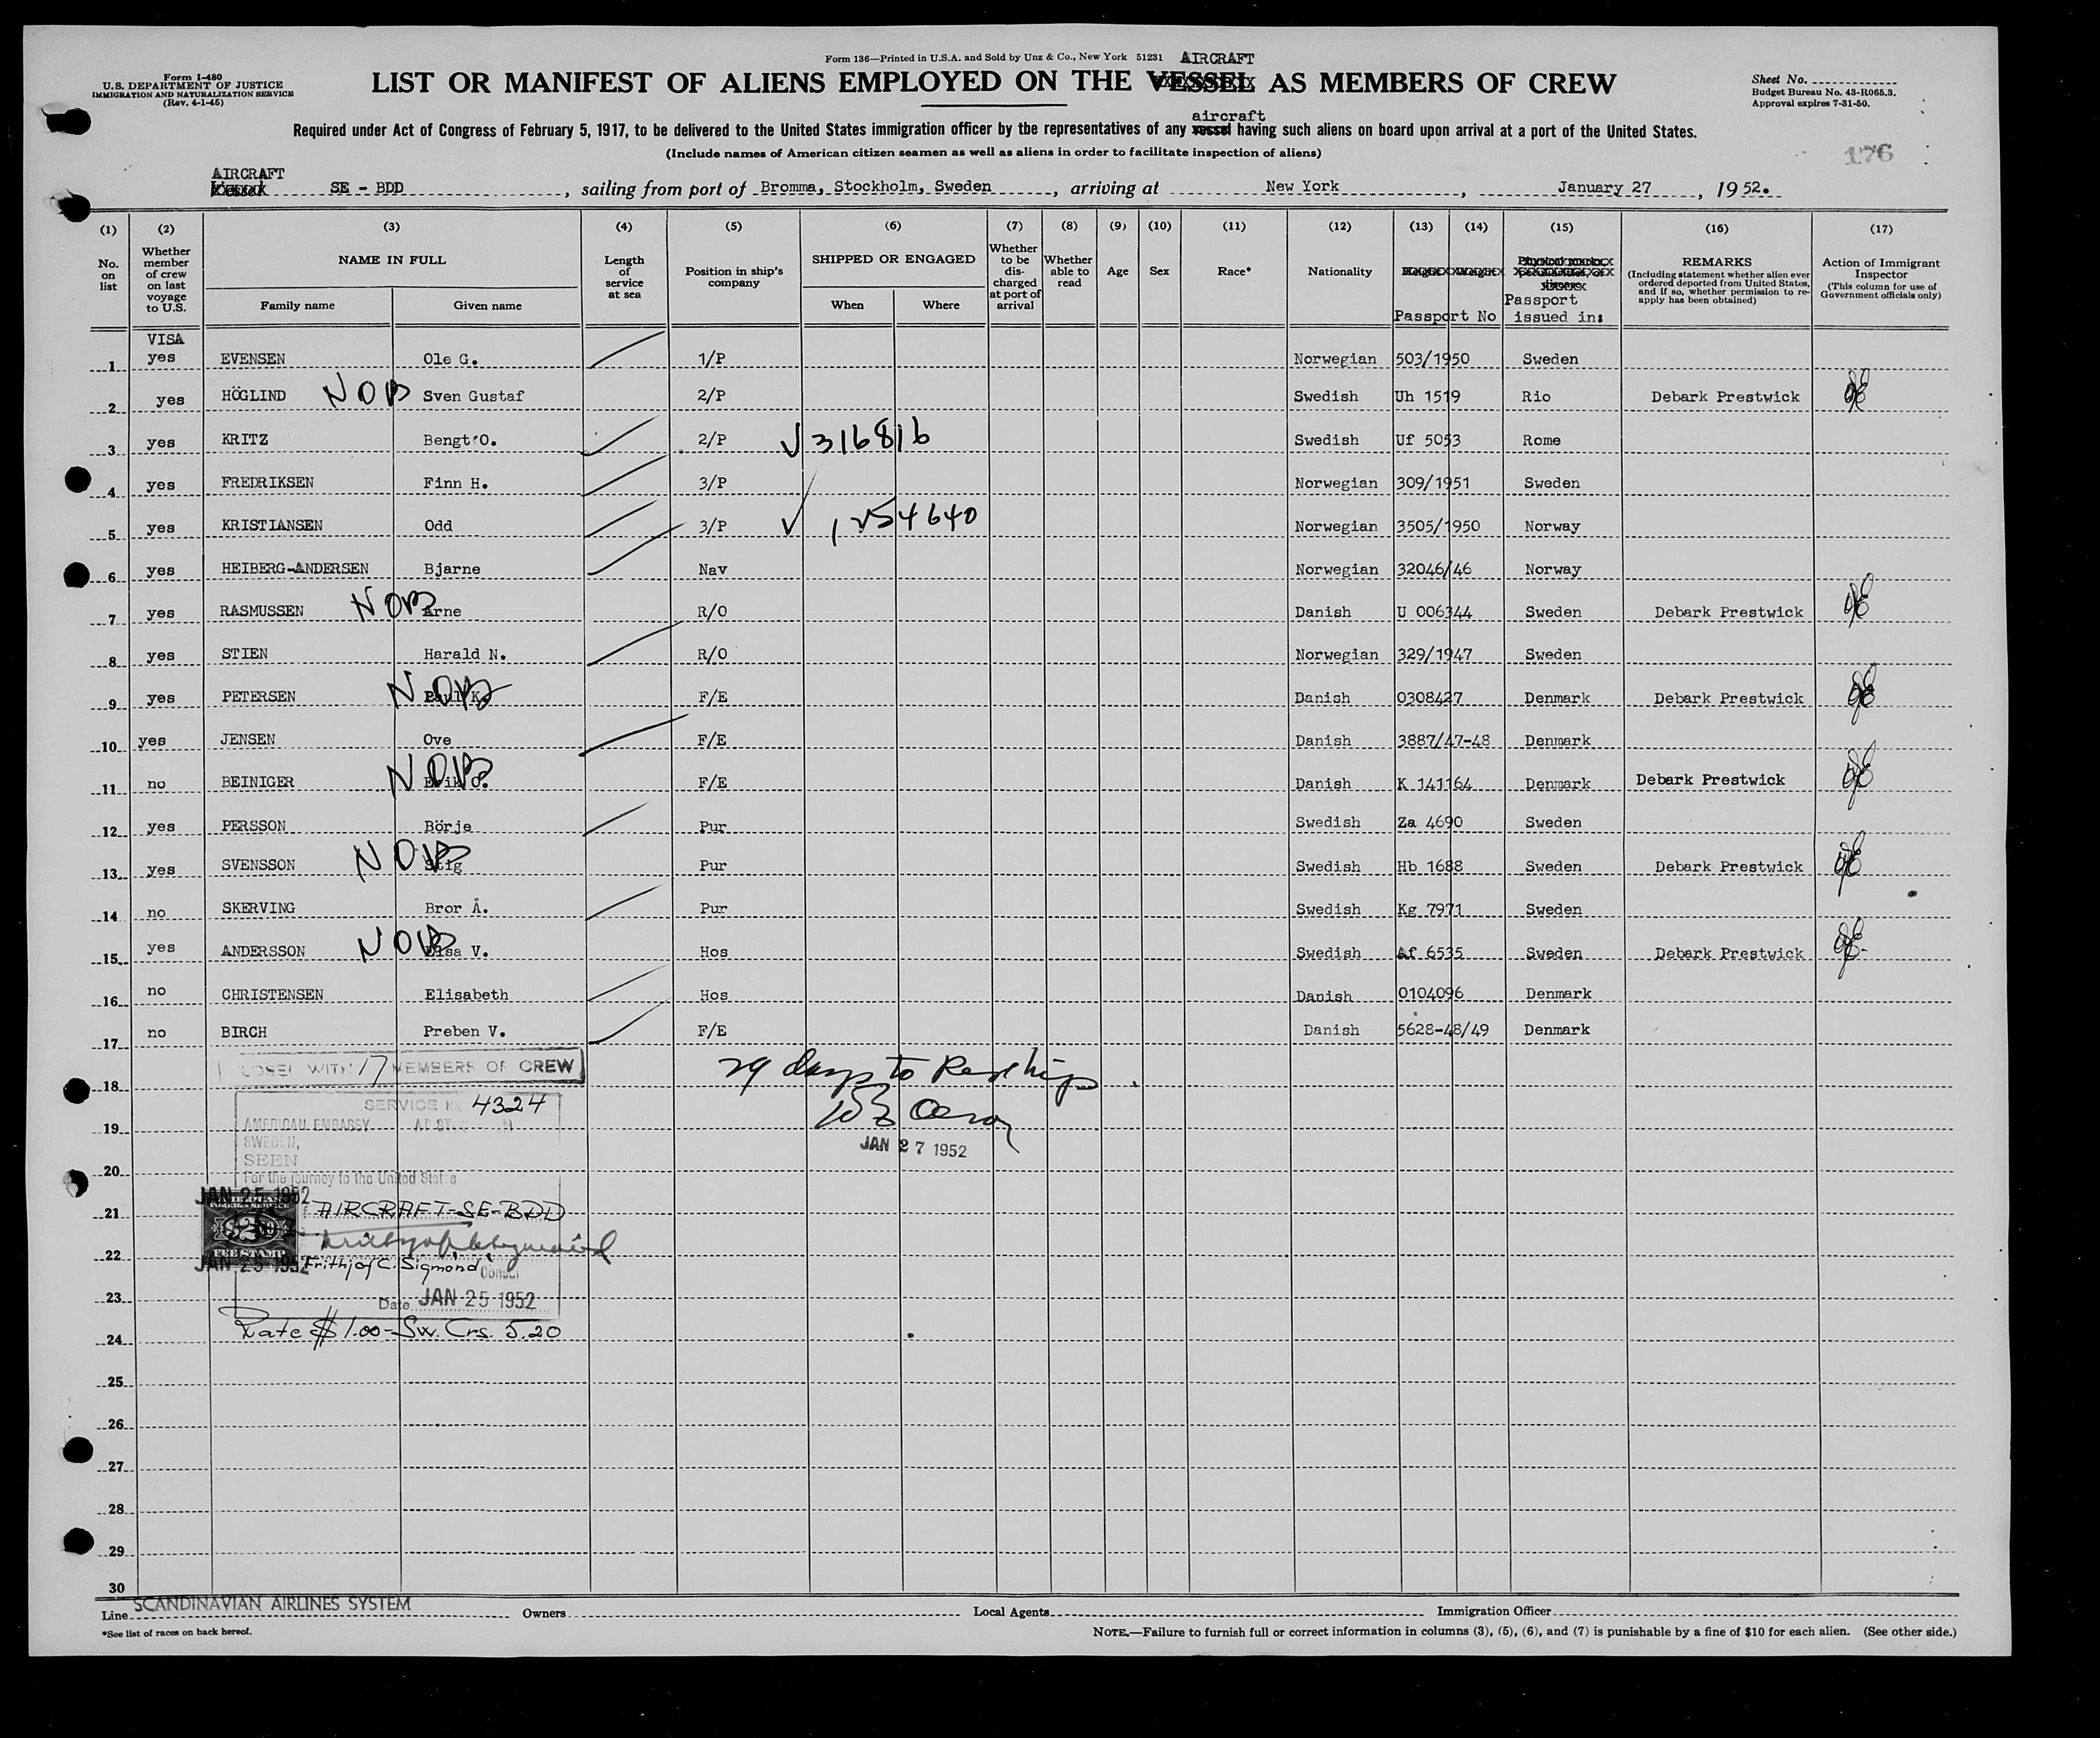 Form 136—Printed in U.S.A. and Sold by Unz & Co., New York 51231
AIRCRAFT
Form I-480
U.S. DEPARTMENT OF JUSTICE
IMMIGRATION AND NATURALIZATION SERVICE
(Rev. 4-1-45)
LIST OR MANIFEST OF ALIENS EMPLOYED ON THE VESSEL AS MEMBERS OF CREW
Sheet No.
Budget Bureau No. 43-R065.3.
Approval expires 7-31-50.
aircraft
Required under Act of Congress of February 5, 1917, to be delivered to the United States immigration officer by the representatives of any vessel having such aliens on board upon arrival at a port of the United States.
(Include names of American citizen seamen as well as aliens in order to facilitate inspection of aliens)
176
AIRCRAFT
Vessel SE - BDD, sailing from port of Bromma, Stockholm, Sweden, arriving at New York, January 27, 1952.
(1) (2) (3) (4) (5) (6) (7) (8) (9) (10) (11) (12) (13) (14) (15) (16) (17)
No. on list
Whether member of crew on last voyage to U.S.
NAME IN FULL
Family name Given name
Length of service at sea
Position in ship's company
SHIPPED OR ENGAGED
When Where
Whether to be discharged at port of arrival
Whether able to read
Age
Sex
Race*
Nationality
Passport No
Passport issued in:
REMARKS
(Including statement whether alien ever ordered deported from United States, and if so, whether permission to reapply has been obtained)
Action of Immigrant Inspector
(This column for use of Government officials only)
VISA
1 yes EVENSEN Ole G. 1/P Norwegian 503/1950 Sweden
2 yes HÖGLIND NOB Sven Gustaf 2/P Swedish Uh 1519 Rio Debark Prestwick
3 yes KRITZ Bengt O. 2/P √316816 Swedish Uf 5053 Rome
4 yes FREDRIKSEN Finn H. 3/P Norwegian 309/1951 Sweden
5 yes KRISTIANSEN Odd 3/P √ 1254640 Norwegian 3505/1950 Norway
6 yes HEIBERG-ANDERSEN Bjarne Nav Norwegian 32046/46 Norway
7 yes RASMUSSEN NOB Arne R/O Danish U 006344 Sweden Debark Prestwick
8 yes STIEN Harald N. R/O Norwegian 329/1947 Sweden
9 yes PETERSEN NOB Paul K. F/E Danish 0308427 Denmark Debark Prestwick
10 yes JENSEN Ove F/E Danish 3887/47-48 Denmark
11 no BEINIGER NOB Erik O. F/E Danish K 141164 Denmark Debark Prestwick
12 yes PERSSON Börje Pur Swedish Za 4690 Sweden
13 yes SVENSSON NOB Stig Pur Swedish Hb 1688 Sweden Debark Prestwick
14 no SKERVING Bror Å. Pur Swedish Kg 7971 Sweden
15 yes ANDERSSON NOB Elsa V. Hos Swedish Af 6535 Sweden Debark Prestwick
16 no CHRISTENSEN Elisabeth Hos Danish 0104096 Denmark
17 no BIRCH Preben V. F/E Danish 5628-48/49 Denmark
CLOSED WITH 17 MEMBERS OF CREW
29 days to Reship
18
SERVICE No. 4324
19
AMERICAN EMBASSY
SWEDEN,
JAN 27 1952
SEEN
20
For the journey to the United States
JAN 25 1952
21 AIRCRAFT-SE-BDD
FEE STAMP
22
JAN 25 1952 Frithjof C. Sigmond Consul
23 Date JAN 25 1952
24 Rate $1.00 - Sw. Crs. 5.20
25
26
27
28
29
30
Line SCANDINAVIAN AIRLINES SYSTEM Owners Local Agents Immigration Officer
*See list of races on back hereof.
NOTE.—Failure to furnish full or correct information in columns (3), (5), (6), and (7) is punishable by a fine of $10 for each alien. (See other side.)